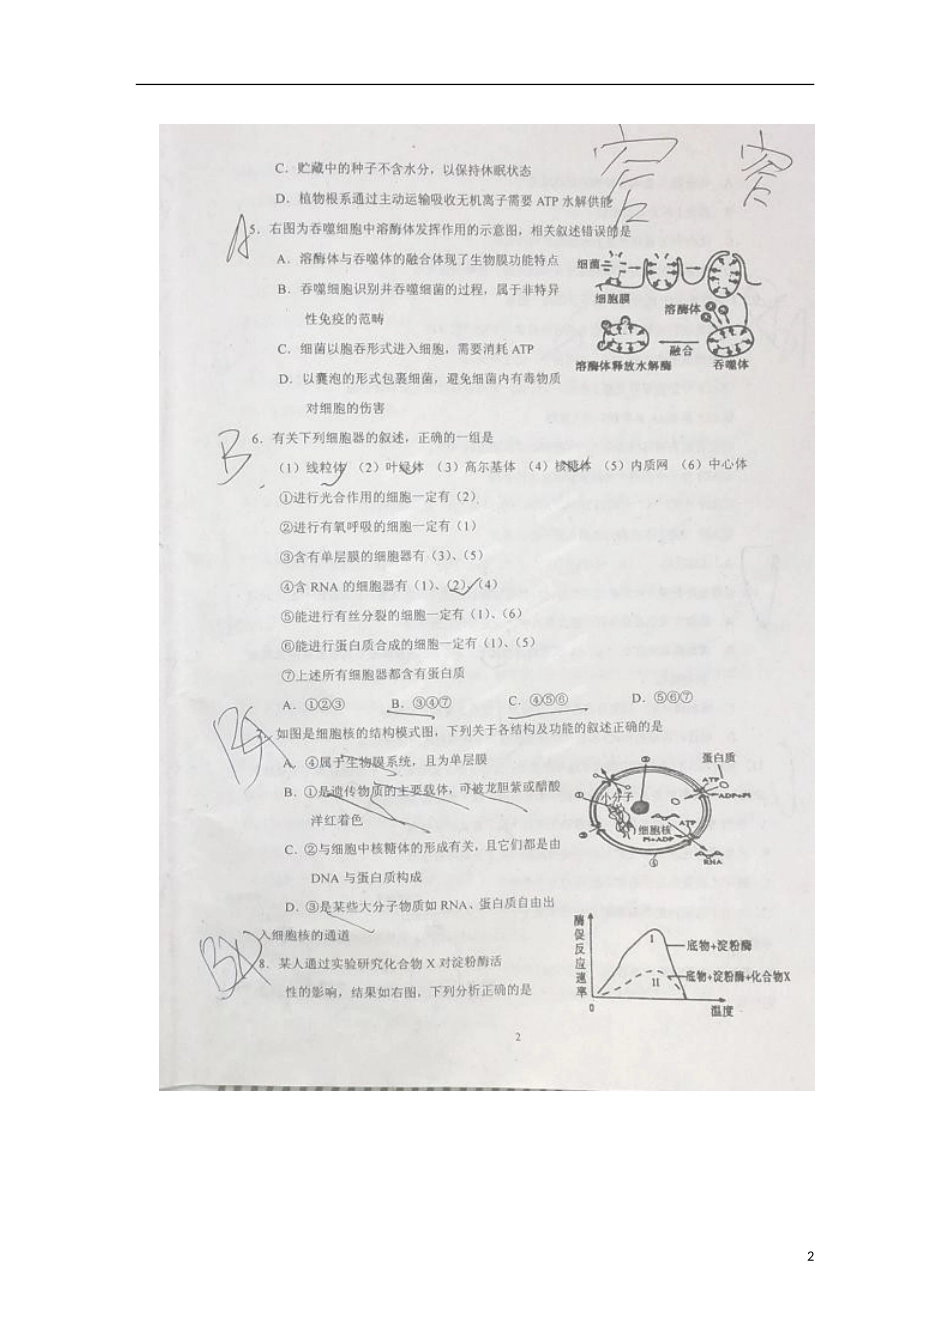 C．贮藏中的种子不含水分，以保持休眠状态
D．植物根系通过主动运输吸收无机离子需要 ATP 水解供能
A
5．右图为吞噬细胞中溶酶体发挥作用的示意图，相关叙述错误的是
A．溶酶体与吞噬体的融合体现了生物膜功能特点
B．吞噬细胞识别并吞噬细菌的过程，属于非特异
性免疫的范畴
C．细菌以胞吞形式进入细胞，需要消耗 ATP
D．以囊泡的形式包裹细菌，避免细菌内有毒物质
对细胞的伤害
细菌
细胞膜
溶酶体
融合
溶酶体释放水解酶
吞噬体
B
6．有关下列细胞器的叙述，正确的一组是
（1）线粒体 （2）叶绿体 （3）高尔基体 （4）核糖体 （5）内质网 （6）中心体
①进行光合作用的细胞一定有（2）
②进行有氧呼吸的细胞一定有（1）
③含有单层膜的细胞器有（3）、（5）
④含 RNA 的细胞器有（1）、（2）、（4）
⑤能进行有丝分裂的细胞一定有（1）、（6）
⑥能进行蛋白质合成的细胞一定有（1）、（5）
⑦上述所有细胞器都含有蛋白质
A．①②③ B．③④⑦ C．④⑤⑥ D．⑤⑥⑦
7．如图是细胞核的结构模式图，下列关于各结构及功能的叙述正确的是
A．④属于生物膜系统，且为单层膜
B．①是遗传物质的主要载体，可被龙胆紫或醋酸
洋红着色
C．②与细胞中核糖体的形成有关，且它们都是由
DNA 与蛋白质构成
D．③是某些大分子物质如 RNA、蛋白质自由出
入细胞核的通道
蛋白质
ATP
ADP+Pi
小分子
①
细胞核
ATP
Pi+ADP
RNA
8．某人通过实验研究化合物 X 对淀粉酶活
性的影响，结果如右图，下列分析正确的是
酶促反应速率
I
底物+淀粉酶
II
底物+淀粉酶+化合物X
0
温度
2
2